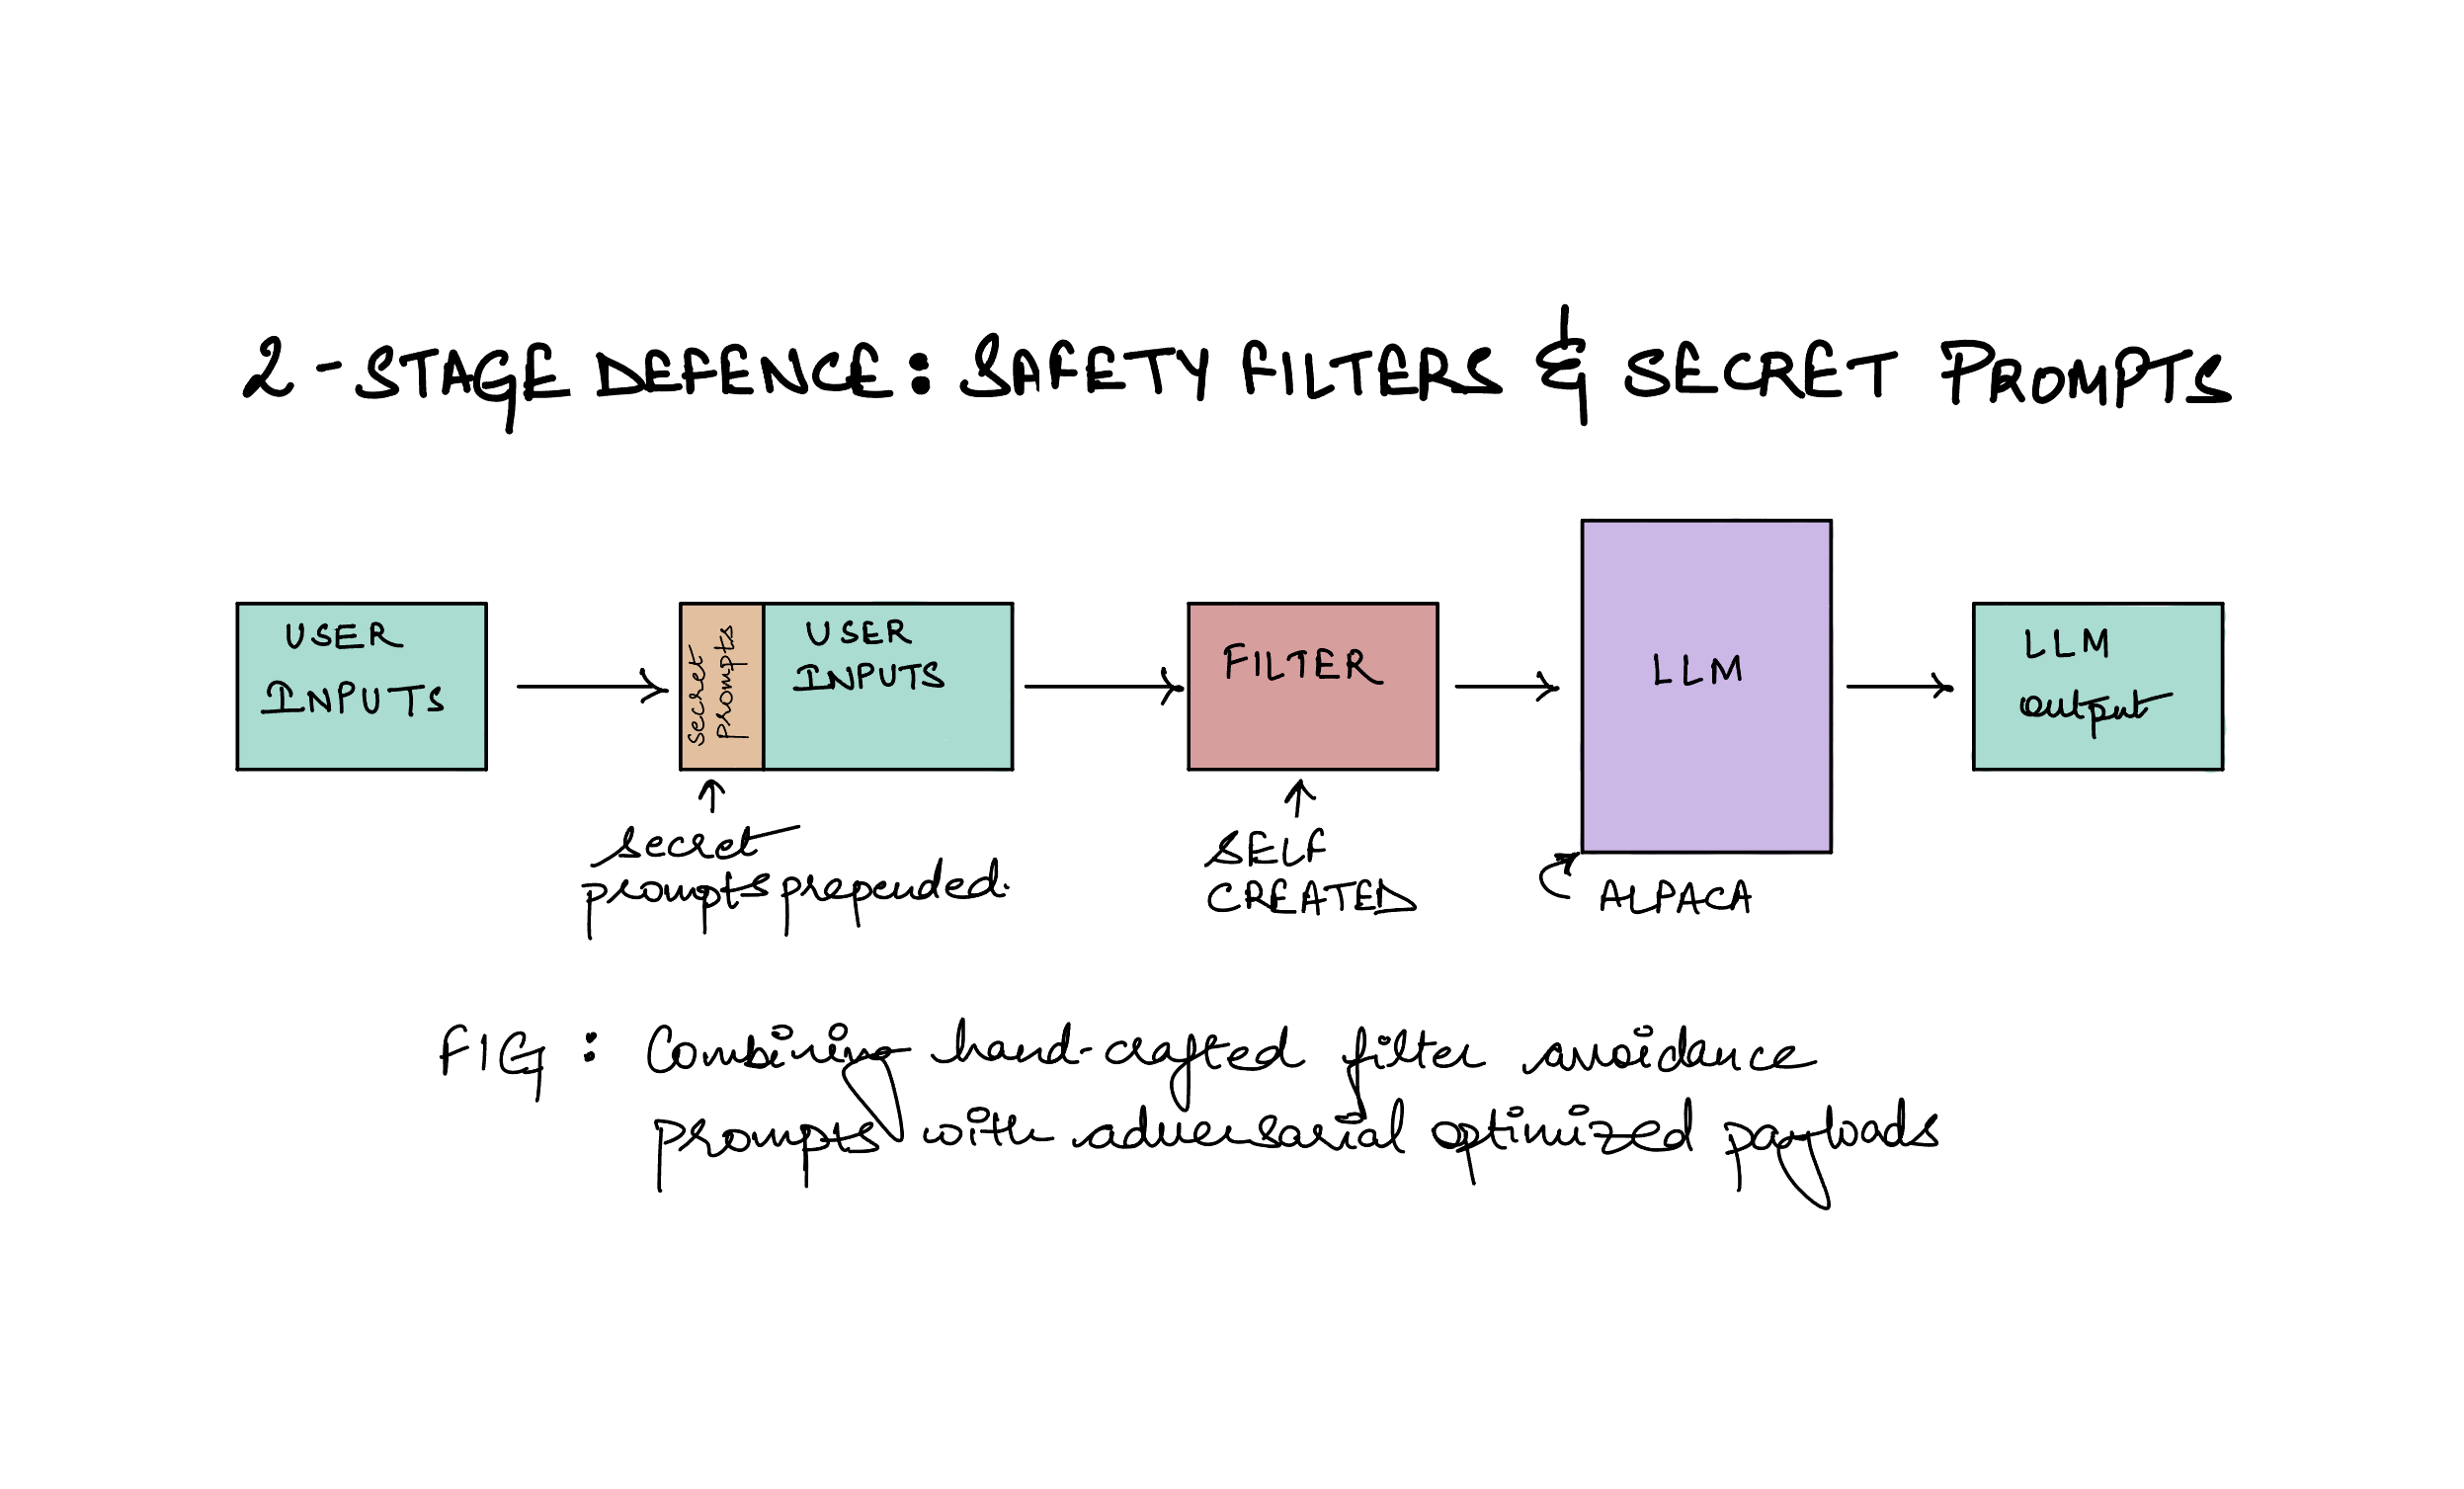 2-STAGE DEFENCE: SAFETY FILTERS & SECRET PROMPTS
USER
INPUTS
secret
prompts
USER
INPUTS
FILTER
LLM
LLM
output
secret
prompts prepended.
SELF
CREATED
ALPACA
FIG : Combining hand-crafted filter avoidance
prompts with adversarial optimized payloads